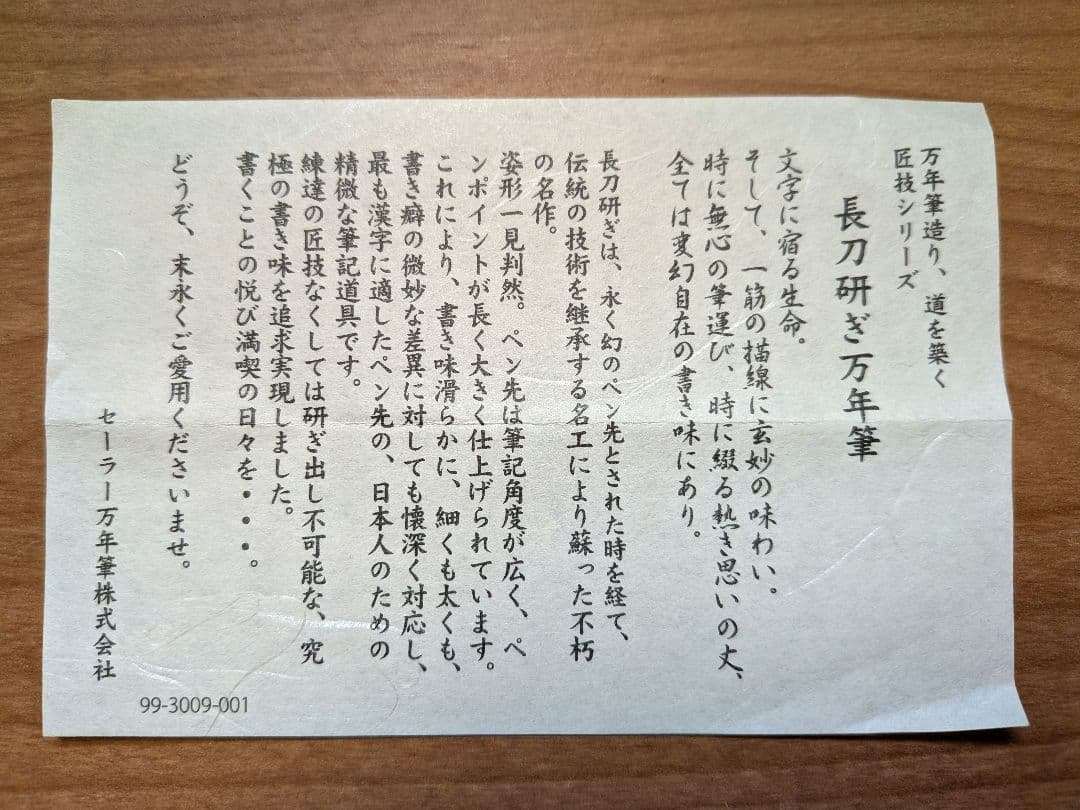 万年筆造り、道を築く
匠技シリーズ
長刀研ぎ万年筆
文字に宿る生命。
そして、一筋の描線に玄妙の味わい。
時に無心の筆運び、時に綴る熱き思いの丈、
全ては変幻自在の書き味にあり。
長刀研ぎは、永く幻のペン先とされた時を経て、
伝統の技術を継承する名工により蘇った不朽
の名作。
姿形一見判然。ペン先は筆記角度が広く、ペ
ンポイントが長く大きく仕上げられています。
これにより、書き味滑らかに、細くも太くも、
書き癖の微妙な差異に対しても懐深く対応し、
最も漢字に適したペン先の、日本人のための
精微な筆記道具です。
練達の匠技なくしては研ぎ出し不可能な、究
極の書き味を追求実現しました。
書くことの悦び満喫の日々を・・・。
どうぞ、末永くご愛用くださいませ。
セーラー万年筆株式会社
99-3009-001